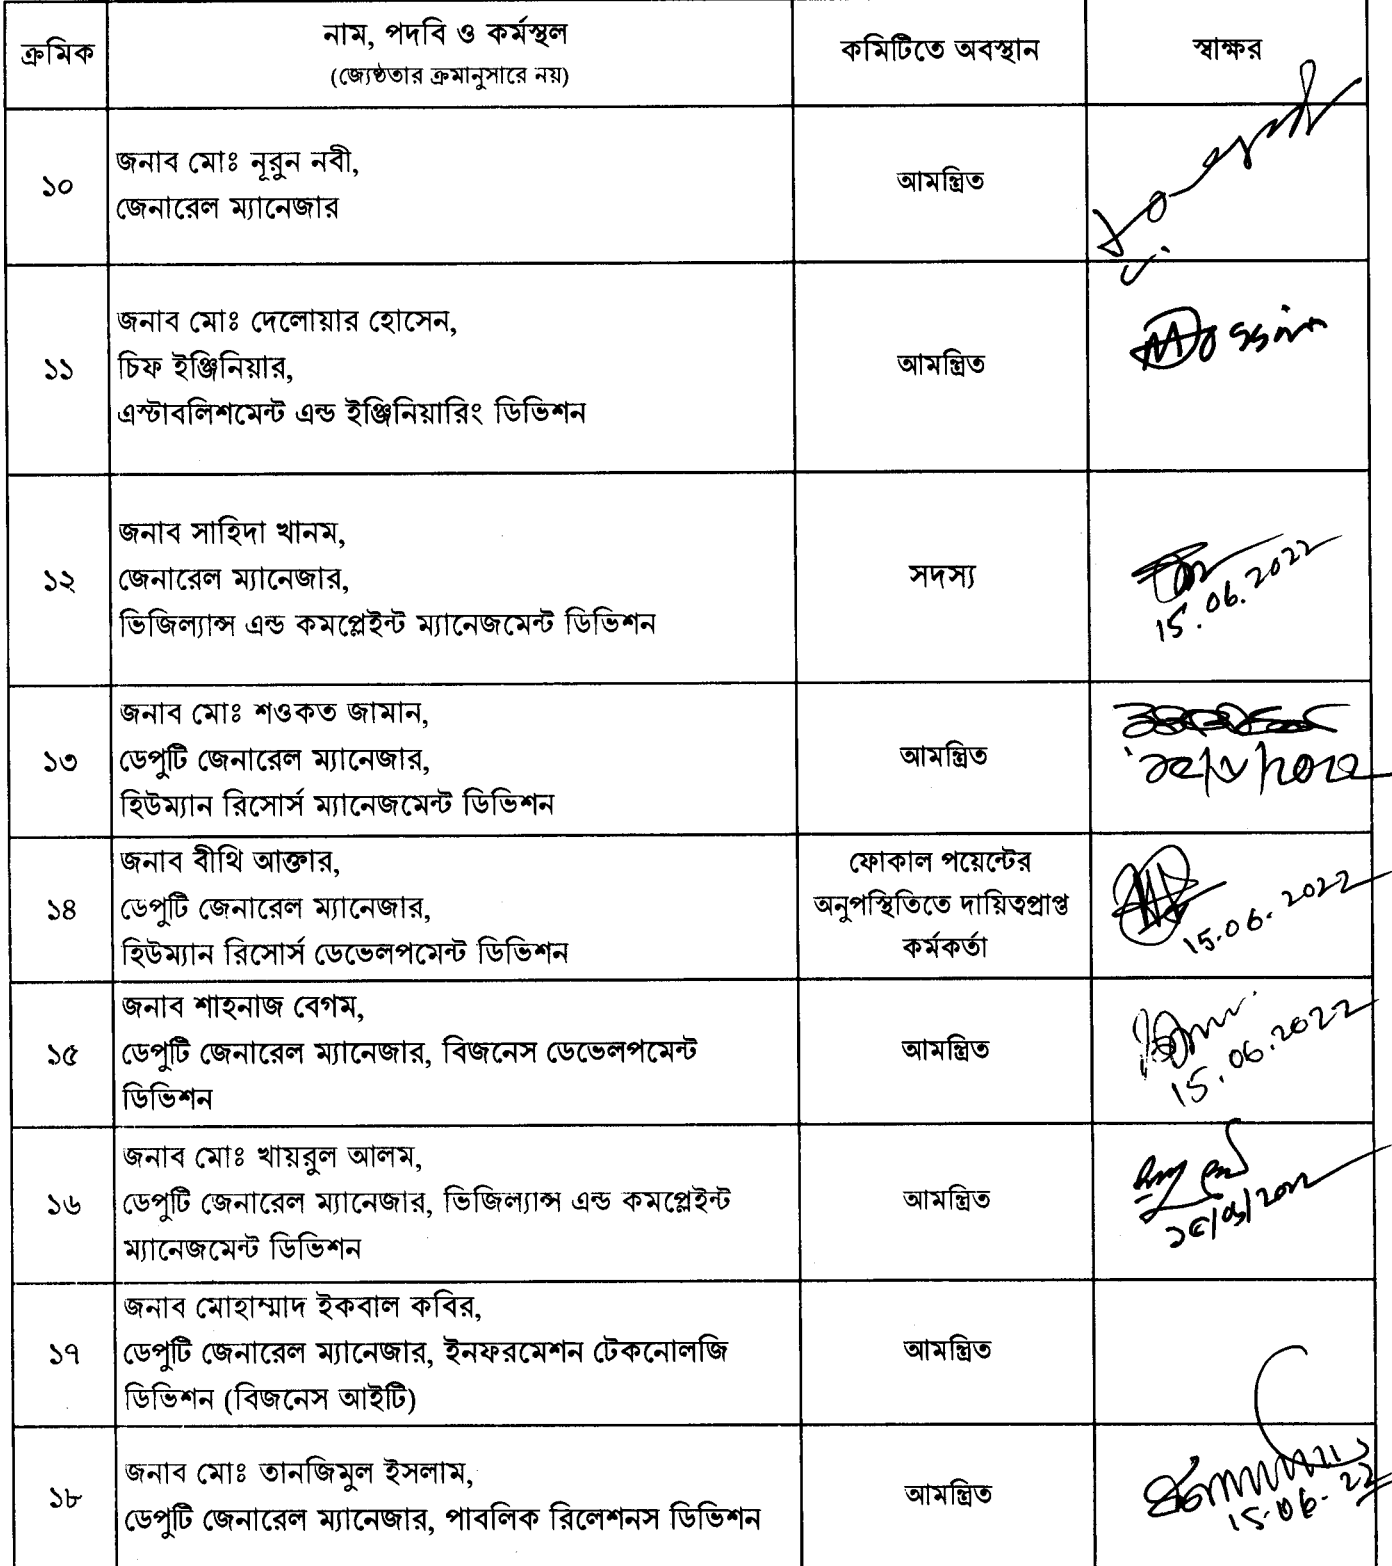 ক্রমিক
নাম, পদবি ও কর্মস্থল
(জ্যেষ্ঠতার ক্রমানুসারে নয়)
কমিটিতে অবস্থান
স্বাক্ষর
১০
জনাব মোঃ নূরুন নবী,
জেনারেল ম্যানেজার
আমন্ত্রিত
১১
জনাব মোঃ দেলোয়ার হোসেন,
চিফ ইঞ্জিনিয়ার,
এস্টাবলিশমেন্ট এন্ড ইঞ্জিনিয়ারিং ডিভিশন
আমন্ত্রিত
১২
জনাব সাহিদা খানম,
জেনারেল ম্যানেজার,
ভিজিল্যান্স এন্ড কমপ্লেইন্ট ম্যানেজমেন্ট ডিভিশন
সদস্য
15.06.2022
১৩
জনাব মোঃ শওকত জামান,
ডেপুটি জেনারেল ম্যানেজার,
হিউম্যান রিসোর্স ম্যানেজমেন্ট ডিভিশন
আমন্ত্রিত
১৪
জনাব বীথি আক্তার,
ডেপুটি জেনারেল ম্যানেজার,
হিউম্যান রিসোর্স ডেভেলপমেন্ট ডিভিশন
ফোকাল পয়েন্টের
অনুপস্থিতিতে দায়িত্বপ্রাপ্ত
কর্মকর্তা
15.06.2022
১৫
জনাব শাহনাজ বেগম,
ডেপুটি জেনারেল ম্যানেজার, বিজনেস ডেভেলপমেন্ট
ডিভিশন
আমন্ত্রিত
15.06.2022
১৬
জনাব মোঃ খায়রুল আলম,
ডেপুটি জেনারেল ম্যানেজার, ভিজিল্যান্স এন্ড কমপ্লেইন্ট
ম্যানেজমেন্ট ডিভিশন
আমন্ত্রিত
১৭
জনাব মোহাম্মাদ ইকবাল কবির,
ডেপুটি জেনারেল ম্যানেজার, ইনফরমেশন টেকনোলজি
ডিভিশন (বিজনেস আইটি)
আমন্ত্রিত
১৮
জনাব মোঃ তানজিমুল ইসলাম,
ডেপুটি জেনারেল ম্যানেজার, পাবলিক রিলেশনস ডিভিশন
আমন্ত্রিত
15.06.22